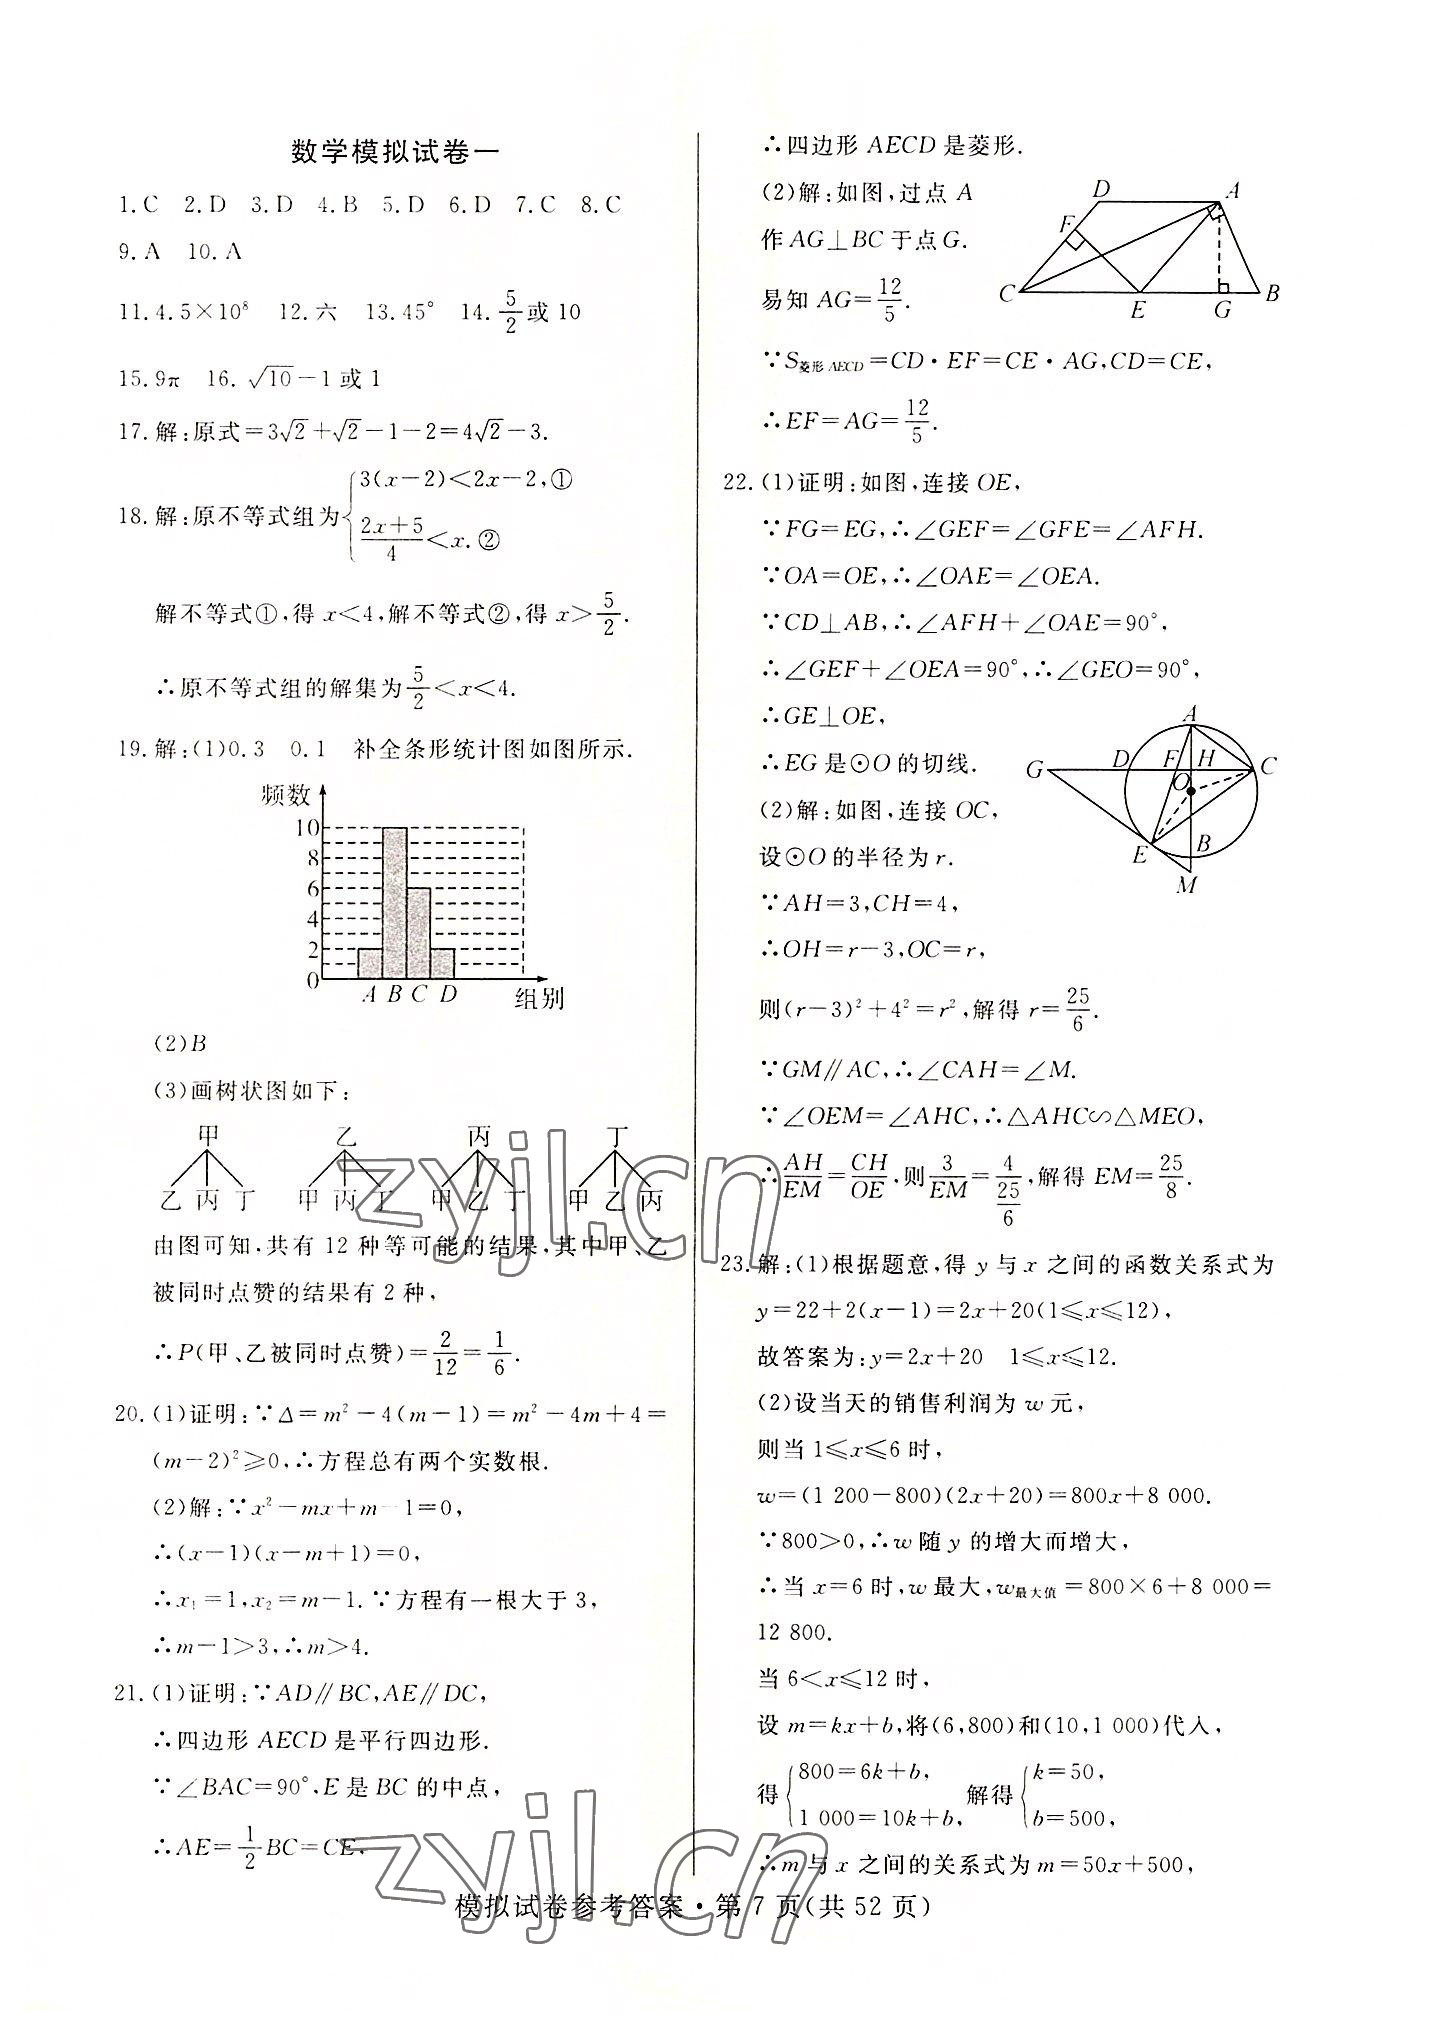 数学模拟试卷一
1.C 2.D 3.D 4.B 5.D 6.D 7.C 8.C
9.A 10.A
11.4.5×10⁸ 12.六 13.45° 14.5/2或10
15.9π 16.√10-1或1
17.解:原式=3√2+√2-1-2=4√2-3.
18.解:原不等式组为{3(x-2)<2x-2,①
(2x+5)/4<x.②
解不等式①,得x<4,解不等式②,得x>5/2.
∴原不等式组的解集为5/2<x<4.
19.解:(1)0.3 0.1 补全条形统计图如图所示.
频数
10
8
6
4
2
0
A B C D 组别
(2)B
(3)画树状图如下:
甲 乙 丙 丁
乙 丙 丁 甲 丙 丁 甲 乙 丁 甲 乙 丙
由图可知,共有12种等可能的结果,其中甲、乙
被同时点赞的结果有2种,
∴P(甲、乙被同时点赞)=2/12=1/6.
20.(1)证明:∵Δ=m²-4(m-1)=m²-4m+4=
(m-2)²≥0,∴方程总有两个实数根.
(2)解:∵x²-mx+m-1=0,
∴(x-1)(x-m+1)=0,
∴x₁=1,x₂=m-1.∵方程有一根大于3,
∴m-1>3,∴m>4.
21.(1)证明:∵AD∥BC,AE∥DC,
∴四边形AECD是平行四边形.
∵∠BAC=90°,E是BC的中点,
∴AE=1/2BC=CE,
∴四边形AECD是菱形.
(2)解:如图,过点A
作AG⊥BC于点G.
易知AG=12/5.
D A F C E G B
∵S菱形AECD=CD·EF=CE·AG,CD=CE,
∴EF=AG=12/5.
22.(1)证明:如图,连接OE,
∵FG=EG,∴∠GEF=∠GFE=∠AFH.
∵OA=OE,∴∠OAE=∠OEA.
∵CD⊥AB,∴∠AFH+∠OAE=90°,
∴∠GEF+∠OEA=90°,∴∠GEO=90°,
∴GE⊥OE,
∴EG是⊙O的切线.
(2)解:如图,连接OC,
设⊙O的半径为r.
A G D F H C O E B M
∵AH=3,CH=4,
∴OH=r-3,OC=r,
则(r-3)²+4²=r²,解得r=25/6.
∵GM∥AC,∴∠CAH=∠M.
∵∠OEM=∠AHC,∴△AHC∽△MEO,
∴AH/EM=CH/OE,则3/EM=4/(25/6),解得EM=25/8.
23.解:(1)根据题意,得y与x之间的函数关系式为
y=22+2(x-1)=2x+20(1≤x≤12),
故答案为:y=2x+20 1≤x≤12.
(2)设当天的销售利润为w元,
则当1≤x≤6时,
w=(1 200-800)(2x+20)=800x+8 000.
∵800>0,∴w随y的增大而增大,
∴当x=6时,w最大,w最大值=800×6+8 000=
12 800.
当6<x≤12时,
设m=kx+b,将(6,800)和(10,1 000)代入,
得{800=6k+b, 1 000=10k+b, 解得{k=50, b=500,
∴m与x之间的关系式为m=50x+500,
模拟试卷参考答案·第7页(共52页)
zyjl.cn
zyjl.cn